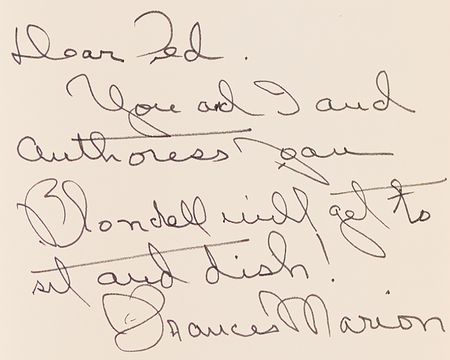 Dear Ted.
You and I and
authoress Joan
Blondell will get to
sit and dish!
Frances Marion